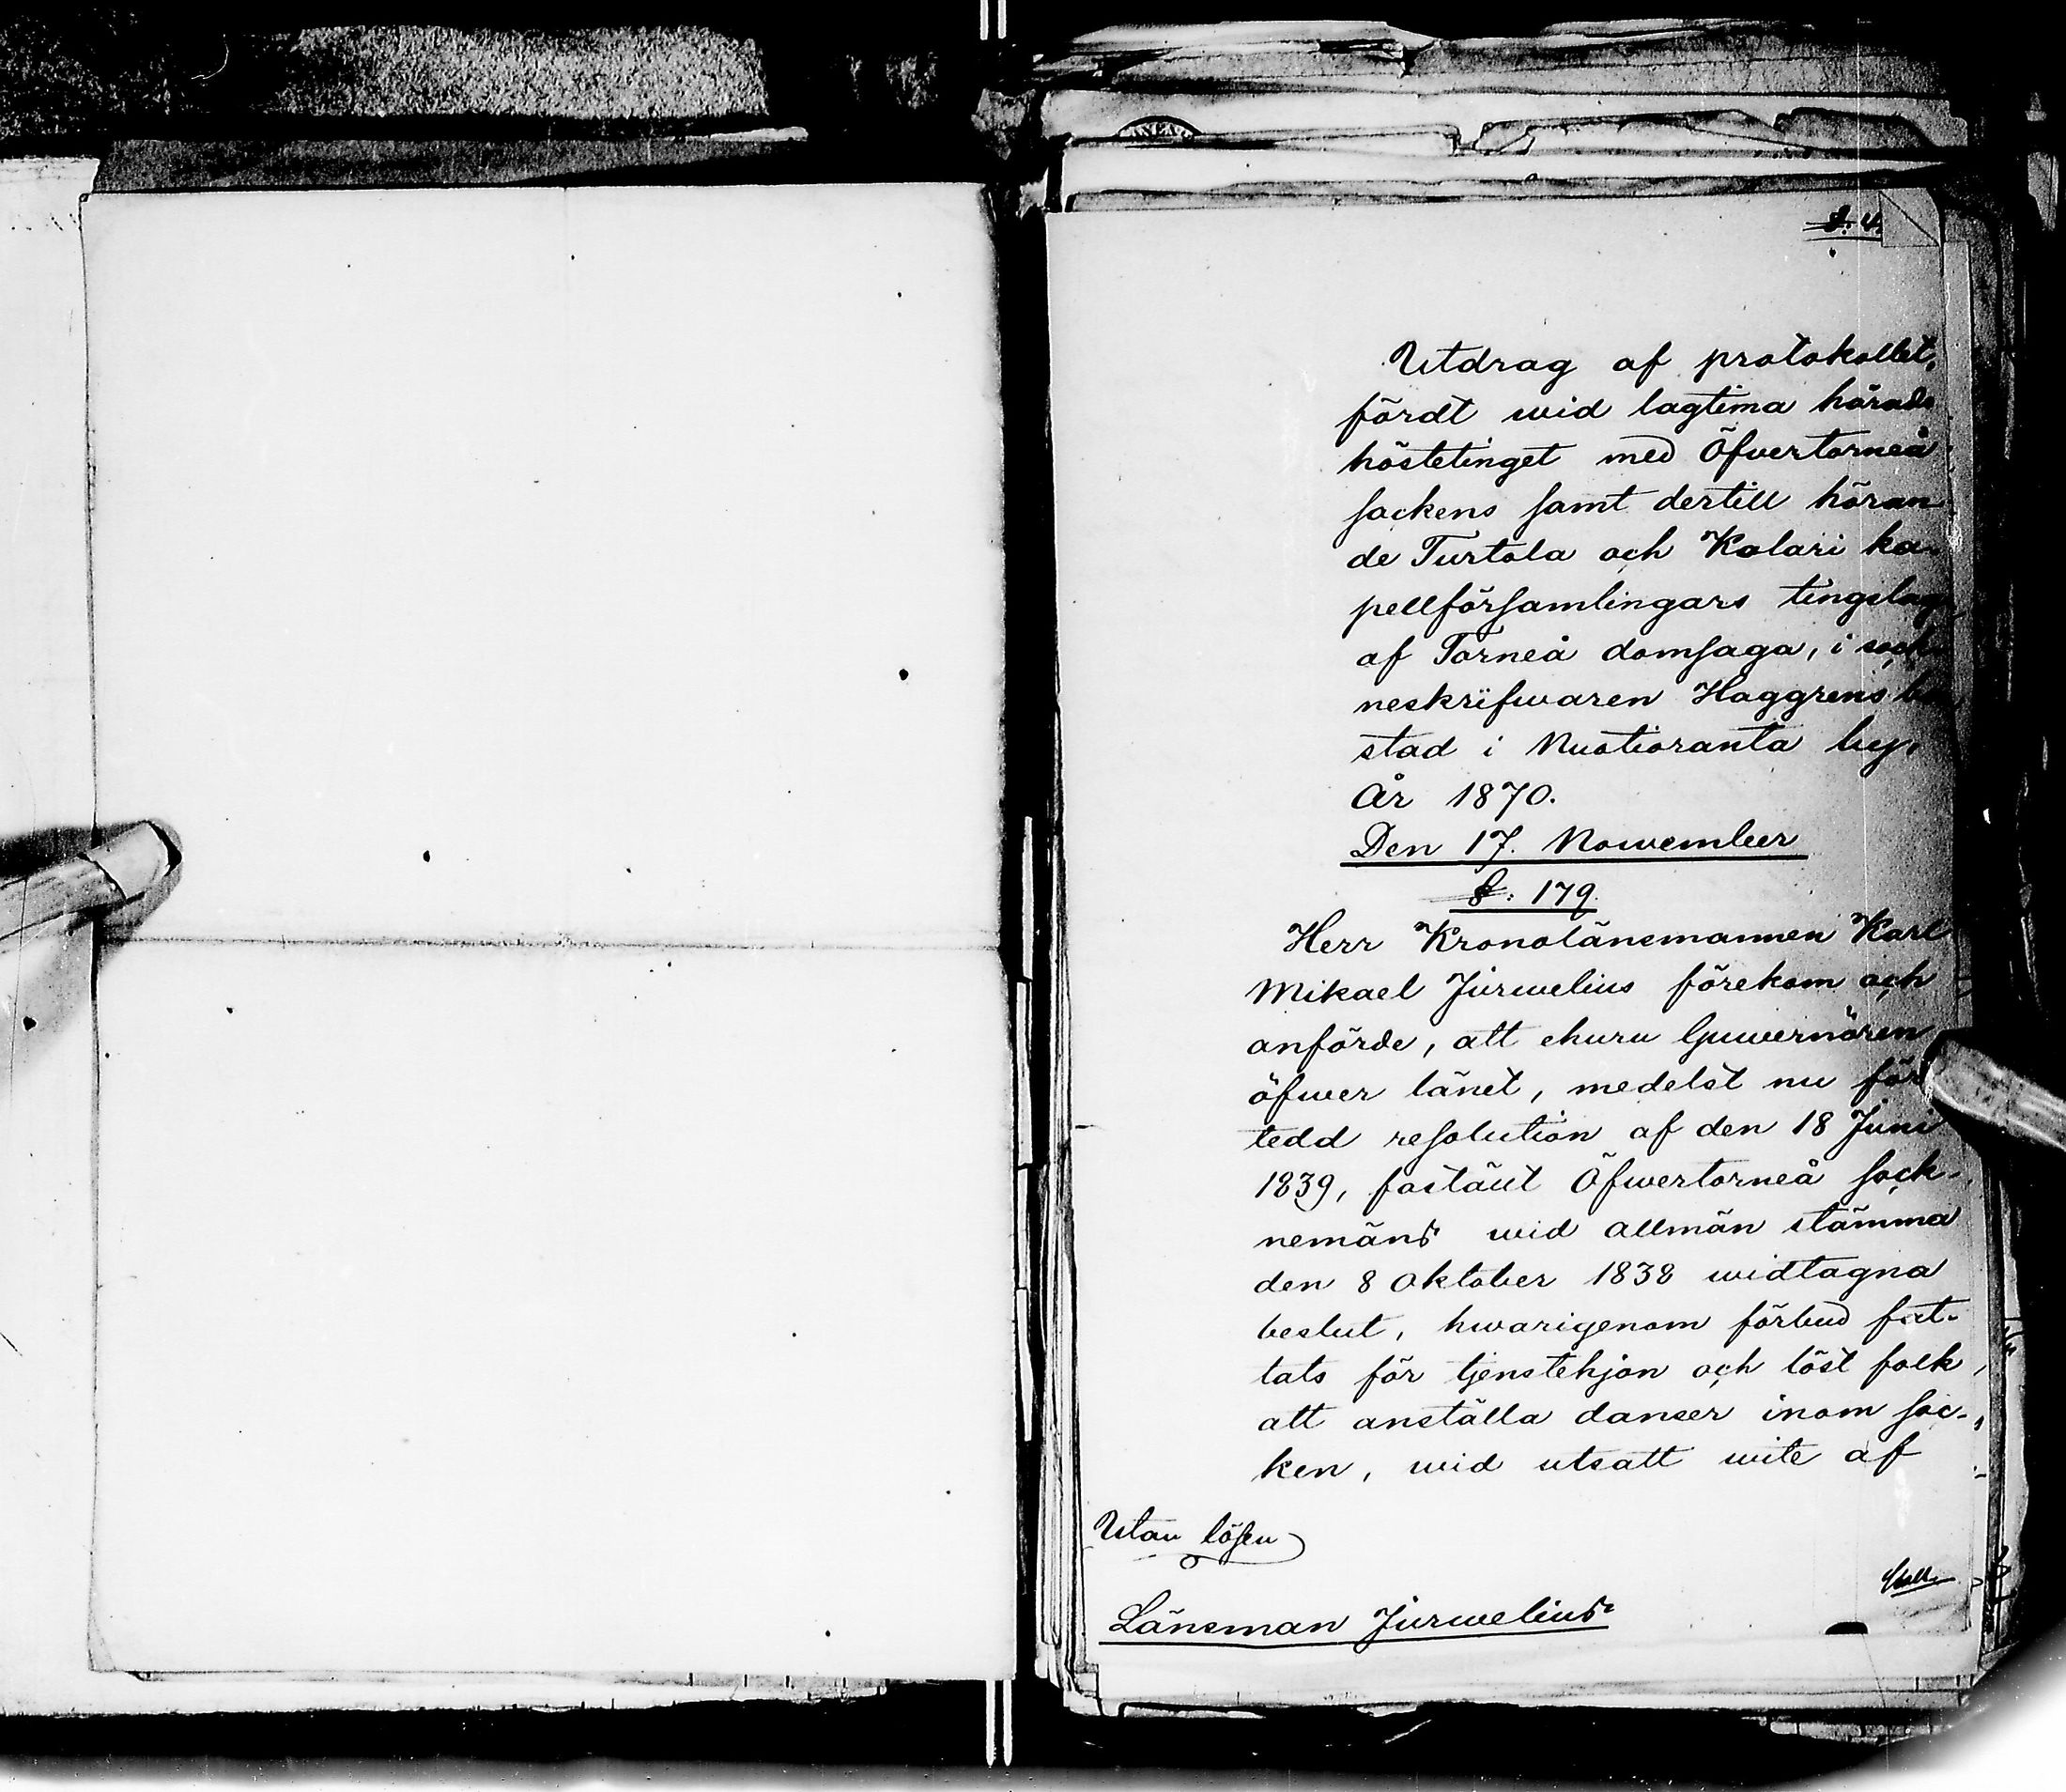 §. 4.
Utdrag af protokollet,
fördt wid lagtima härads
höstetinget med Öfvertorneå
sockens samt dertill höran
de Turtola och Kolari ka-
pellförsamlingars tingslag
af Torneå domsaga, i sock-
neskrifwaren Haggrens bo
stad i Nuotioranta by.
År 1870.
Den 17. Nowember
§. 179.
Herr Kronolänsmannen Karl
Mikael Jurwelius förekom och
anförde, att ehuru Guwernören
öfwer länet, medelst nu för
tedd resolution af den 18 Juni
1839, fastäut Öfwertorneå sock-
nemäns wid allmän stämma
den 8 Oktober 1838 widtagna
beslut, hwarigenom förbud fat-
tats för tjenstehjon och löst folk,
att anställa danser inom soc-
ken, wid utsatt wite af
Utan lösen
Länsman Jurwelius